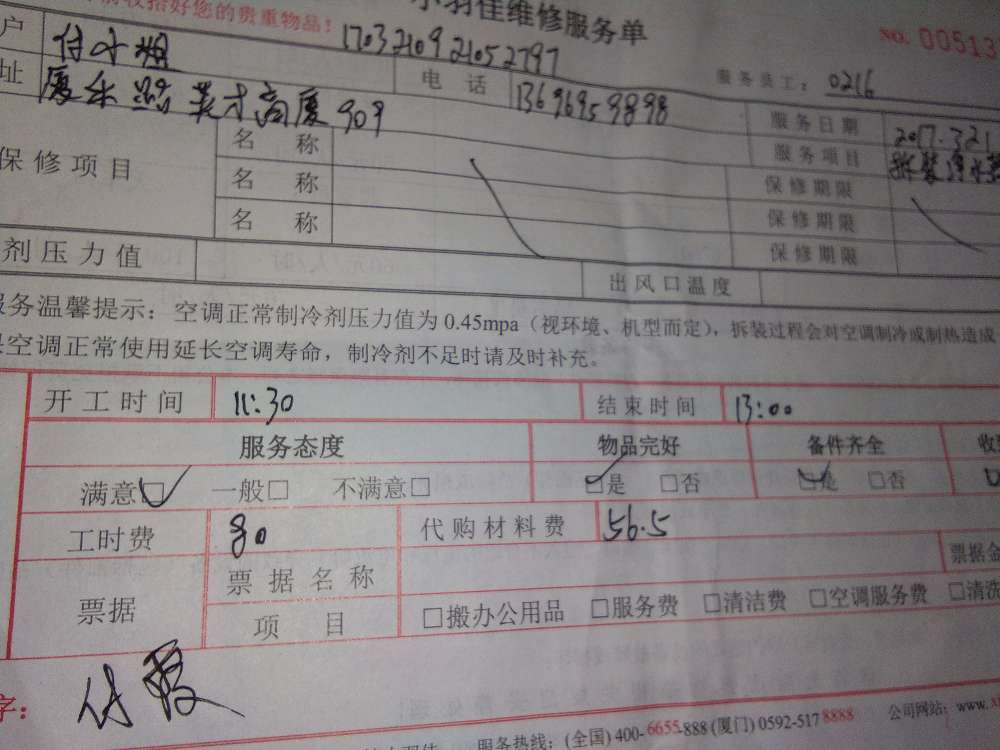 收拾好您的贵重物品！
佳维修服务单
NO. 00513
户 付小姐 1703210921052797
电话 13696959898
服务员工： 0216
址 英才高厦909
服务日期 2017.3.21
保修项目 名称 服务项目 拆装净水
名称 保修期限
名称 保修期限
保修期限
剂压力值 出风口温度
服务温馨提示：空调正常制冷剂压力值为 0.45mpa（视环境、机型而定），拆装过程会对空调制冷或制热造成
空调正常使用延长空调寿命，制冷剂不足时请及时补充。
开工时间 11:30 结束时间 13:00
服务态度 物品完好 备件齐全 收
满意□ 一般□ 不满意□ □是 □否 □是 □否
工时费 80 代购材料费 56.5
票据 票据名称 票据金
项目 □搬办公用品 □服务费 □清洁费 □空调服务费 □清洗
字： 付霞
服务热线：(全国) 400-6655-888 (厦门) 0592-5178888 公司网站：www.x